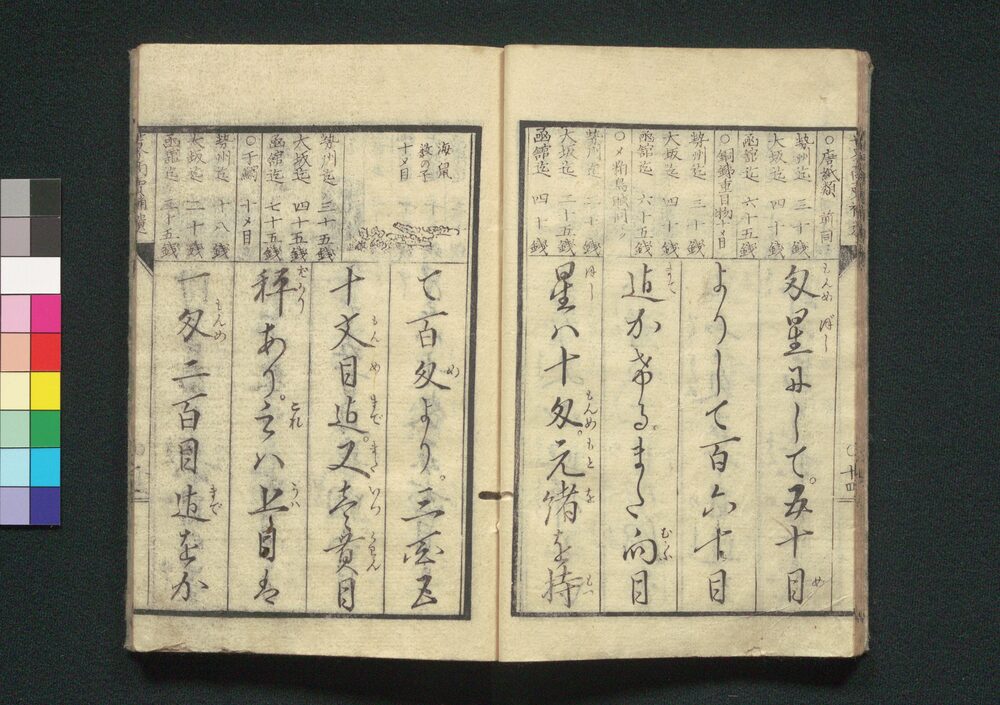 ○唐紙類 前同
勢州迄 三十銭
大坂迄 四十五銭
函舘迄 六十五銭
○銅錫重目物十〆目
勢州迄 三十銭
大坂迄 四十五銭
函舘迄 六十五銭
勢州迄 二十銭
大坂迄 二十五銭
函舘迄 四十銭
匁星にして。五十目
よりして百六十目
迄かける。また向目
星ハ十匁。元緒を持
海鼠
数の子
十〆目
勢州迄 三十五銭
大坂迄 四十五銭
函舘迄 七十五銭
○干鯛 十〆目
勢州迄 十八銭
大坂迄 二十銭
函舘迄 三十五銭
て百匁より。三百五
十文目迄。又壱貫目
秤あり。之ハ上目は
一匁二百目迄をか
十四